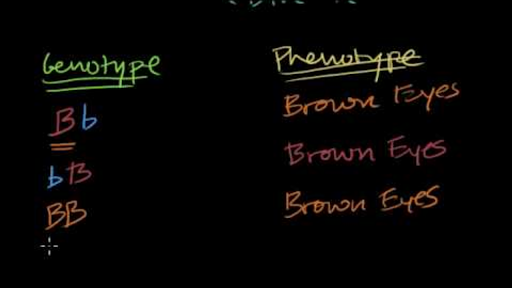 Genotype Phenotype
Bb Brown Eyes
bB Brown Eyes
BB Brown Eyes